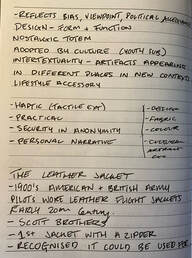 - REFLECTS BIAS, VIEWPOINT, POLITICAL
DESIGN - FORM & FUNCTION
NOSTALGIC TOTEM
ADOPTED BY CULTURE (YOUTH SUB)
INTERTEXTUALITY - ARTIFACTS APPEARING
IN DIFFERENT PLACES IN NEW CONTEXTS
LIFESTYLE ACCESSORY
- HAPTIC (TACTILE
- PRACTICAL
- SECURITY IN ANONYMITY
- PERSONAL NARRATIVE
- FABRIC
- COLOUR
THE LEATHER JACKET
- 1900'S AMERICAN + BRITISH ARMY
PILOTS WORE LEATHER FLIGHT JACKETS
EARLY 20TH CENTURY.
- SCOTT BROTHERS
- 1ST JACKET WITH A ZIPPER
- RECOGNISED IT COULD BE USED FOR